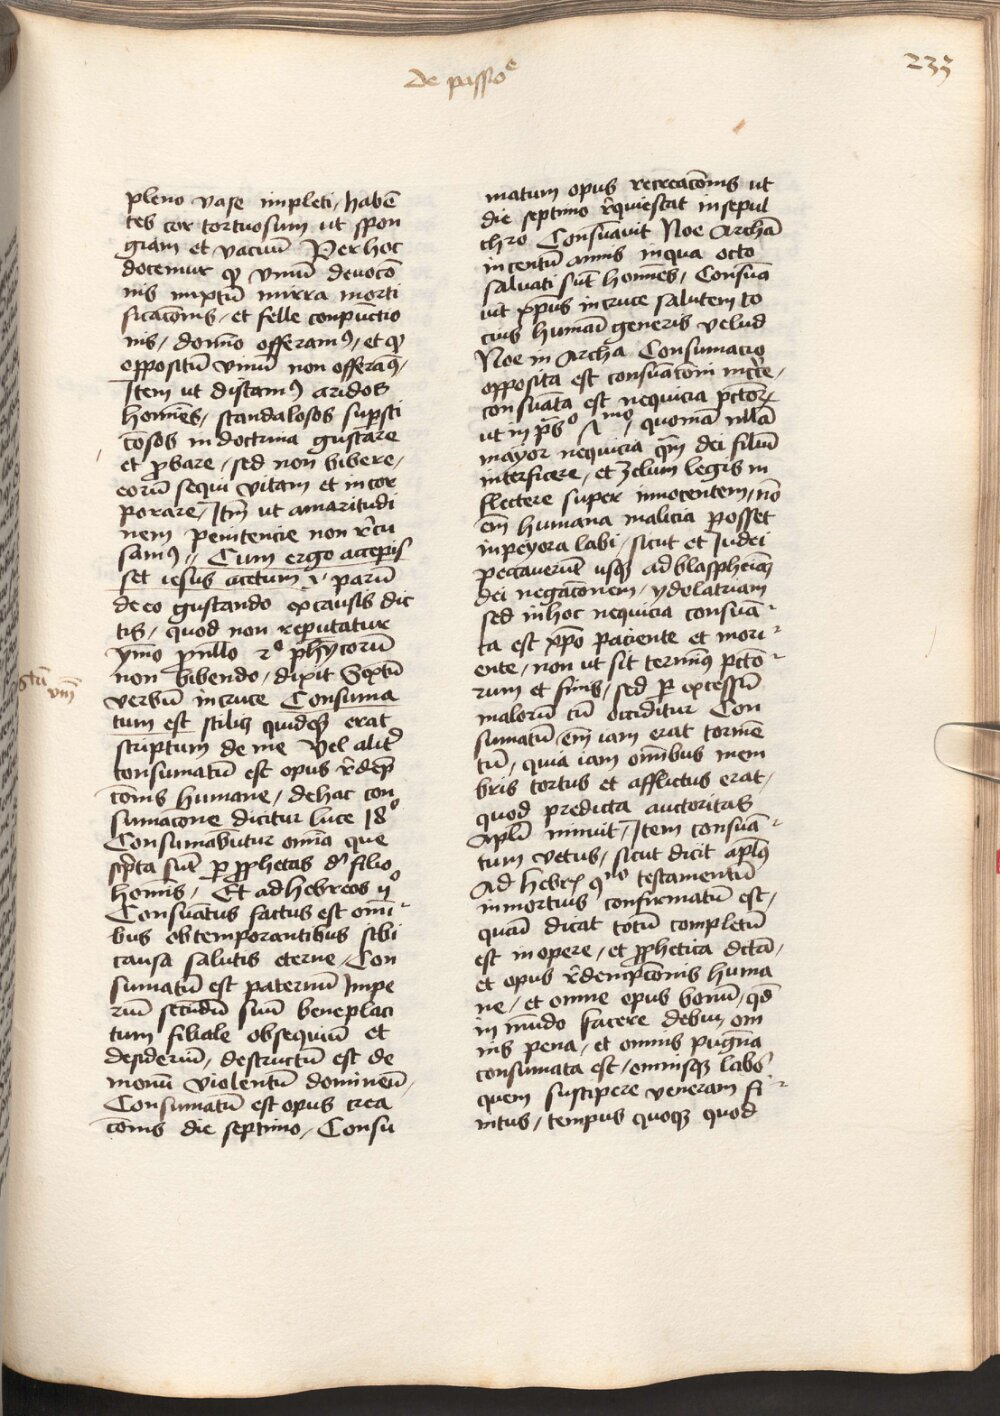 De passioe
233
pleno vase impleti / habē
tes cor tortuosum ut spon
giam et vacuū Per hoc
docemur qͥ vinū deuocō
nis mixtū mirra morti
ficacōnis / et felle conpūctio
nis / domīo offeramꝰ / et qͥ
oppositū vinū non offeraꝰ /
Item ut discamꝰ aridos
homēs / scandalosos supsti
cōsos in doctrina gustare
et ꝓbare / sed non bibere /
eorū sequi vitam et incor
porare / Itm̄ ut amaritudi
nem penitencie non r̄cu
samꝰ // Cum ergo accepis
set iesus acetum i parū
de eo gustando ex causis dic
tis / quod non reputatur
ymo ꝓ nllo phycorū
non bibendo / dixit Sextū
verbū in cruce Consuma
tum est stilis quidqͥ erat
scriptum de me Vel alit̄
consumatū est opus r̄dep̄
cōnis humane / de hac con
sumacōne dicitur luce 18º
Consumabūtur omīa que
sc̄pta sūt ꝑ ꝓphetas dͤ filio
homīs / Et ad hebreos ijº
Consūatus factus est omī
bus obtemporantibus sibi
causa salutis eterne / Con
sumatū est paternū Impe
riū secūdū suū beneplaci
tum filiale obsequiū et
desideriū / destructū est de
monū violentū domineū /
Consumatū est opus crea
cōnis die septimo / Consu
matum opus recreacōnis ut
die septimo r̄quiescat in sepul
chro Consūauit Noe Archā
in centū annis in qua octo
saluati sūt homēs / Consūa
uit xp̄us in cruce salutem to
cius humani generis velud
Noe in Archa Consumacio
opposita est consūacōni
consūata est nequicia pc̄torꝝ
ut in pͣsº quoniā nllā
mayor nequicia qͣm dei filiū
interficere / et zelum legis in
flectere super innocentem / nō
em̄ humana malicia posset
in peyora labi / sicut et Iudei
peccauerūt usqꝫ ad blasphemiā
dei negacōnem / ydolatriam
sed in hoc nequicia consūa
ta est xp̄o paciente et mori
ente / non ut sit termīꝰ pc̄to
rum et finis / sed ꝑ excessū
malorū cū occiditur Con
sumatū em̄ iam erat tormē
tū / quia iam omībus mem
bris tortus et afflictus erat /
quod predicta auctoritas
apl̄i innuit / Item consūa
tum vetus / sicut dicit apl̄ꝰ
Ad hebreꝝ testamentū
in mortuis confirmatū est /
quasi dicat totū completū
est in opere / et ꝓphetica dc̄ta /
et opus r̄dempcōnis huma
ne / et omne opus bonū / qd̄
in mūdo facere debui / om
nis pena / et omnis pugna
consumata est / omnisqꝫ labō
quem suscipere veneram fi
nitus / tempus quoqꝫ quod